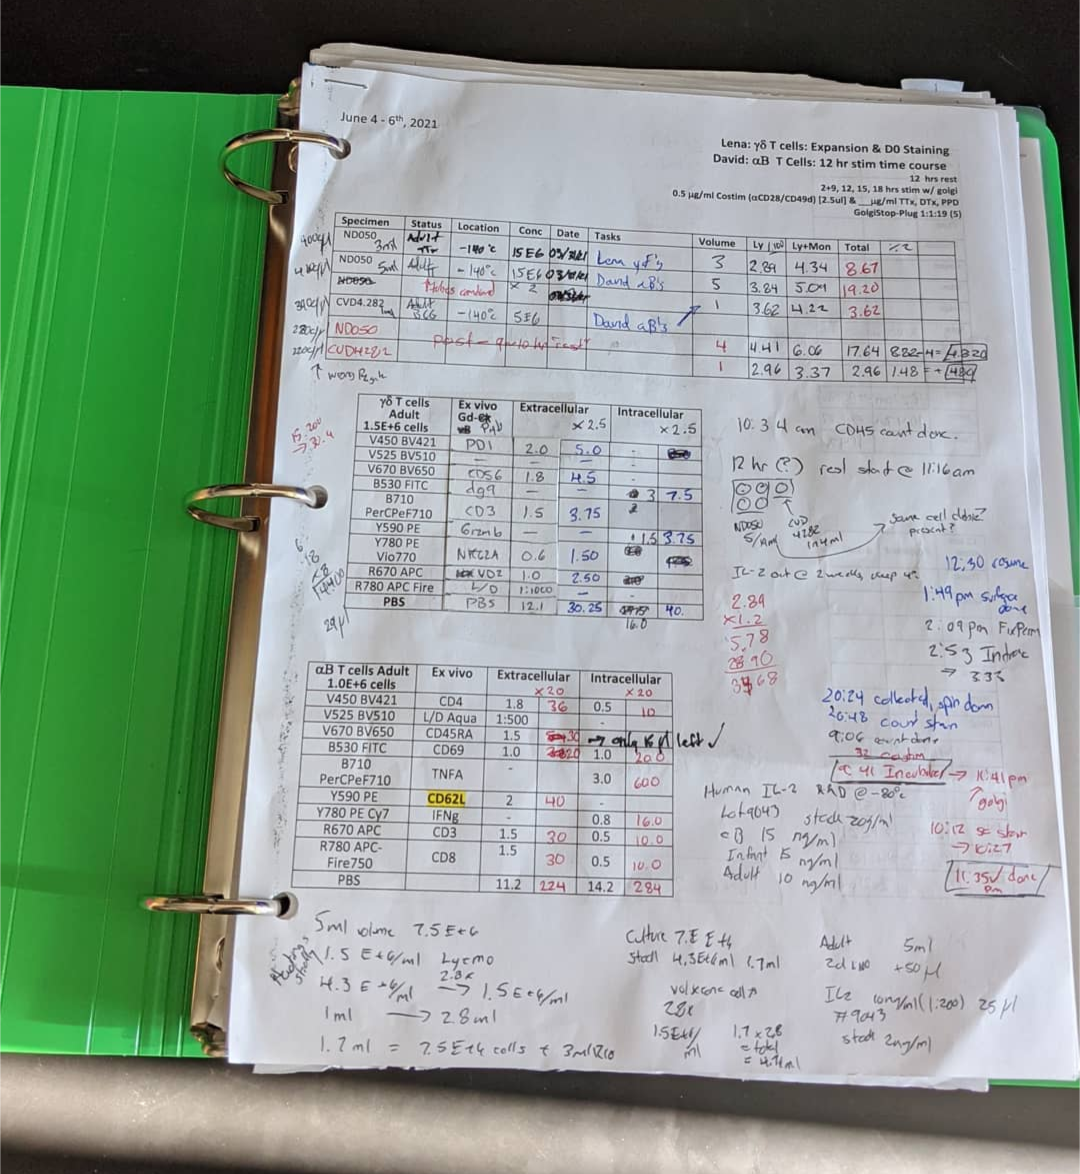 June 4 - 6th, 2021
Lena: γδ T cells: Expansion & D0 Staining
David: αB T Cells: 12 hr stim time course
12 hrs rest
2+9, 12, 15, 18 hrs stim w/ golgi
0.5 µg/ml Costim (αCD28/CD49d) [2.5ul] & __µg/ml TTx, DTx, PPD
GolgiStop-Plug 1:1:19 (5)
Specimen Status Location Conc Date Tasks Volume Ly Ly+Mon Total
ND050 3ml Adult -140°C 15E6 Lena γδ's 3 2.89 4.34 8.67
ND050 5ml Adult -140°C 15E6 David αB's 5 3.84 5.09 19.20
ND050 x 2
CVD4.282 Adult BCG -140°C 5E6 David αB's 1 3.62 4.22 3.62
ND050 4 4.41 6.06 17.64
CVD4282 1 2.96 3.37 2.96 1.48
γδ T cells Adult 1.5E+6 cells Ex vivo Extracellular x 2.5 Intracellular x 2.5
V450 BV421 PD1 2.0 5.0 -
V525 BV510 - - -
V670 BV650 CD56 1.8 4.5 -
B530 FITC dg9 - - 3 7.5
B710 PerCPeF710 CD3 1.5 3.75
Y590 PE Grzmb - - 1.5 3.75
Y780 PE Vio770 NKG2A 0.6 1.50
R670 APC VD2 1.0 2.50
R780 APC Fire L/D 1:1000 -
PBS PBS 12.1 30.25 40.
16.0
29µl
10:34 am CD45 count done.
12 hr (?) rest start @ 11:16am
ND050
CVD 4282
1n4ml
Same cell
present?
IL-2 out @ 2 weeks, keep 4°
2.89
x1.2
5.78
28 90
3468
12:30 resume
1:49pm surface done
2:09pm FixPerm
2:53 Intrac
→ 3:33
20:24 collected, spin down
20:48 count stain
9:06 count done
9:41 Incubator → 11:41pm
golgi
10:12
→ 10:27
11:35 done pm
αB T cells Adult 1.0E+6 cells Ex vivo Extracellular x20 Intracellular x20
V450 BV421 CD4 1.8 36 0.5 10
V525 BV510 L/D Aqua 1:500 -
V670 BV650 CD45RA 1.5 30 → only left ✓
B530 FITC CD69 1.0 20 1.0 20.0
B710 PerCPeF710 TNFA - 3.0 600
Y590 PE CD62L 2 40 -
Y780 PE Cy7 IFNg - 0.8 16.0
R670 APC CD3 1.5 30 0.5 10.0
R780 APC-Fire750 CD8 1.5 30 0.5 10.0
PBS 11.2 224 14.2 284
Human IL-2 R&D @ -80°c
Lot 9043 stock
CB 15 ng/ml
Infant 15 ng/ml
Adult 10 ng/ml
5ml volume 7.5E+6
1.5 E+6/ml Lymo
4.3 E+6/ml 2.8x → 1.5E+6/ml
1ml → 2.8ml
1.7ml = 7.5E+6 cells + 3ml R10
stock 4.3E+6ml 1.7ml
vol x conc cells
2.8x
1.5E+6/ml
1.7 x 2.8
= total
= 4.76ml
Adult 5ml
+50µl
IL2 10ng/ml (1:200) 25µl
#9043
stock 2ng/ml